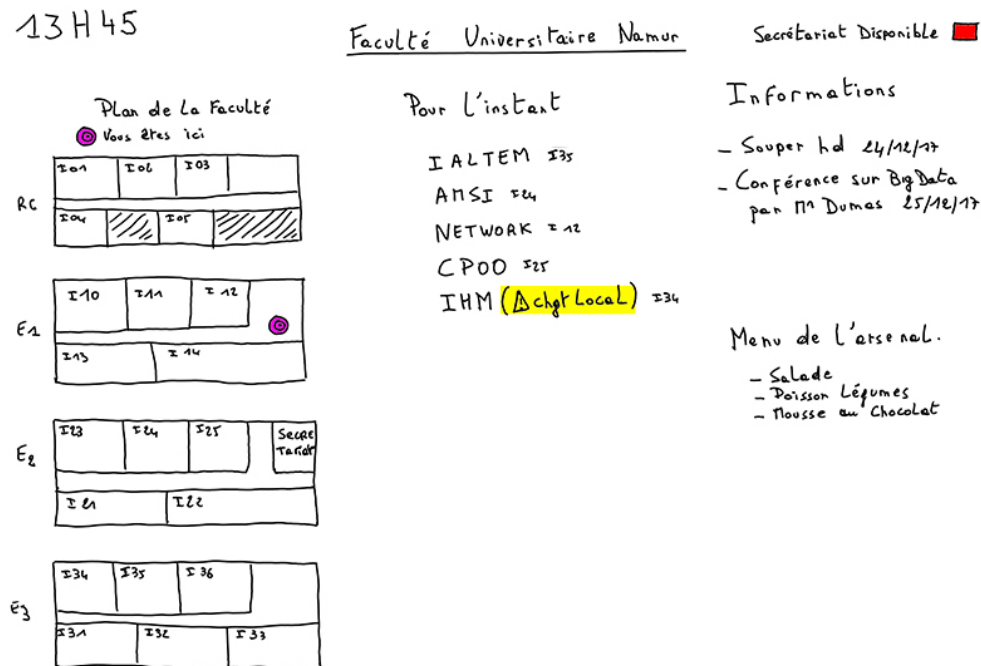 13H45
Faculté Universitaire Namur
Secrétariat Disponible
Plan de la Faculté
Vous êtes ici
RC
I01 I02 I03
I04 I05
E1
I10 I11 I12
I13 I14
E2
I23 I24 I25 Secre
tariat
I21 I22
E3
I34 I35 I36
I31 I32 I33
Pour l'instant
IALTEM I35
AMSI I24
NETWORK I12
CPOO I25
IHM (⚠ chgt Local) I34
Informations
- Souper hd 24/12/17
- Conférence sur BigData
par Mr Dumas 25/12/17
Menu de l'arsenal.
- Salade
- Poisson Légumes
- Mousse au Chocolat